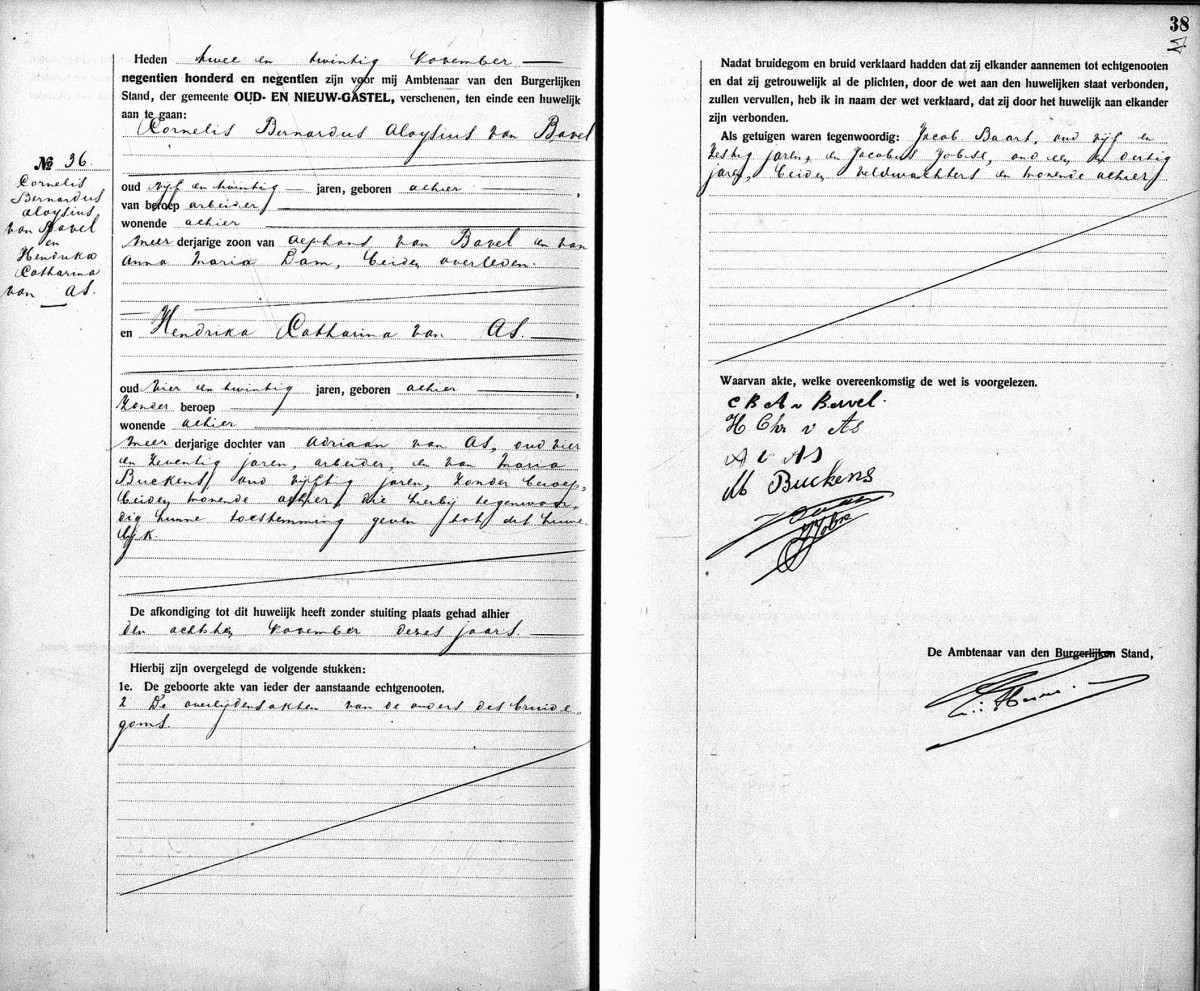 Heden twee en twintig November
negentien honderd en negentien zijn voor mij Ambtenaar van den Burgerlijken
Stand, der gemeente OUD- EN NIEUW-GASTEL, verschenen, ten einde een huwelijk
aan te gaan:
Cornelis Bernardus Aloysius van Bavel
№ 36.
Cornelis
Bernardus
Aloysius
van Bavel
en
Hendrika
Catharina
van As.
oud vijf en twintig jaren, geboren alhier,
van beroep arbeider
wonende alhier
meer derjarige zoon van Alphons van Bavel en van
Anna Maria Dam, beiden overleden.
en Hendrika Catharina van As.
oud vier en twintig jaren, geboren alhier
zonder beroep
wonende alhier
meer derjarige dochter van Adriaan van As, oud vier
en zeventig jaren, arbeider, en van Maria
Buckens, oud vijftig jaren, zonder beroep,
beiden wonende alhier die hierbij tegenwoor-
dig hunne toestemming geven tot dit huwe-
lijk.
De afkondiging tot dit huwelijk heeft zonder stuiting plaats gehad alhier
den achtsten November dezes jaars.
Hierbij zijn overgelegd de volgende stukken:
1e. De geboorte akte van ieder der aanstaande echtgenooten.
2 De overlijdensakten van de ouders des bruide-
goms.
38
Nadat bruidegom en bruid verklaard hadden dat zij elkander aannemen tot echtgenooten
en dat zij getrouwelijk al de plichten, door de wet aan den huwelijken staat verbonden,
zullen vervullen, heb ik in naam der wet verklaard, dat zij door het huwelijk aan elkander
zijn verbonden.
Als getuigen waren tegenwoordig: Jacob Baart, oud vijf en
zestig jaren, en Jacobus Jobse, oud een en dertig
jaren, beiden veldwachters en wonende alhier
Waarvan akte, welke overeenkomstig de wet is voorgelezen.
C B A v Bavel.
H Chr v As
A v AS
M Buckens
Jobse
De Ambtenaar van den Burgerlijken Stand,